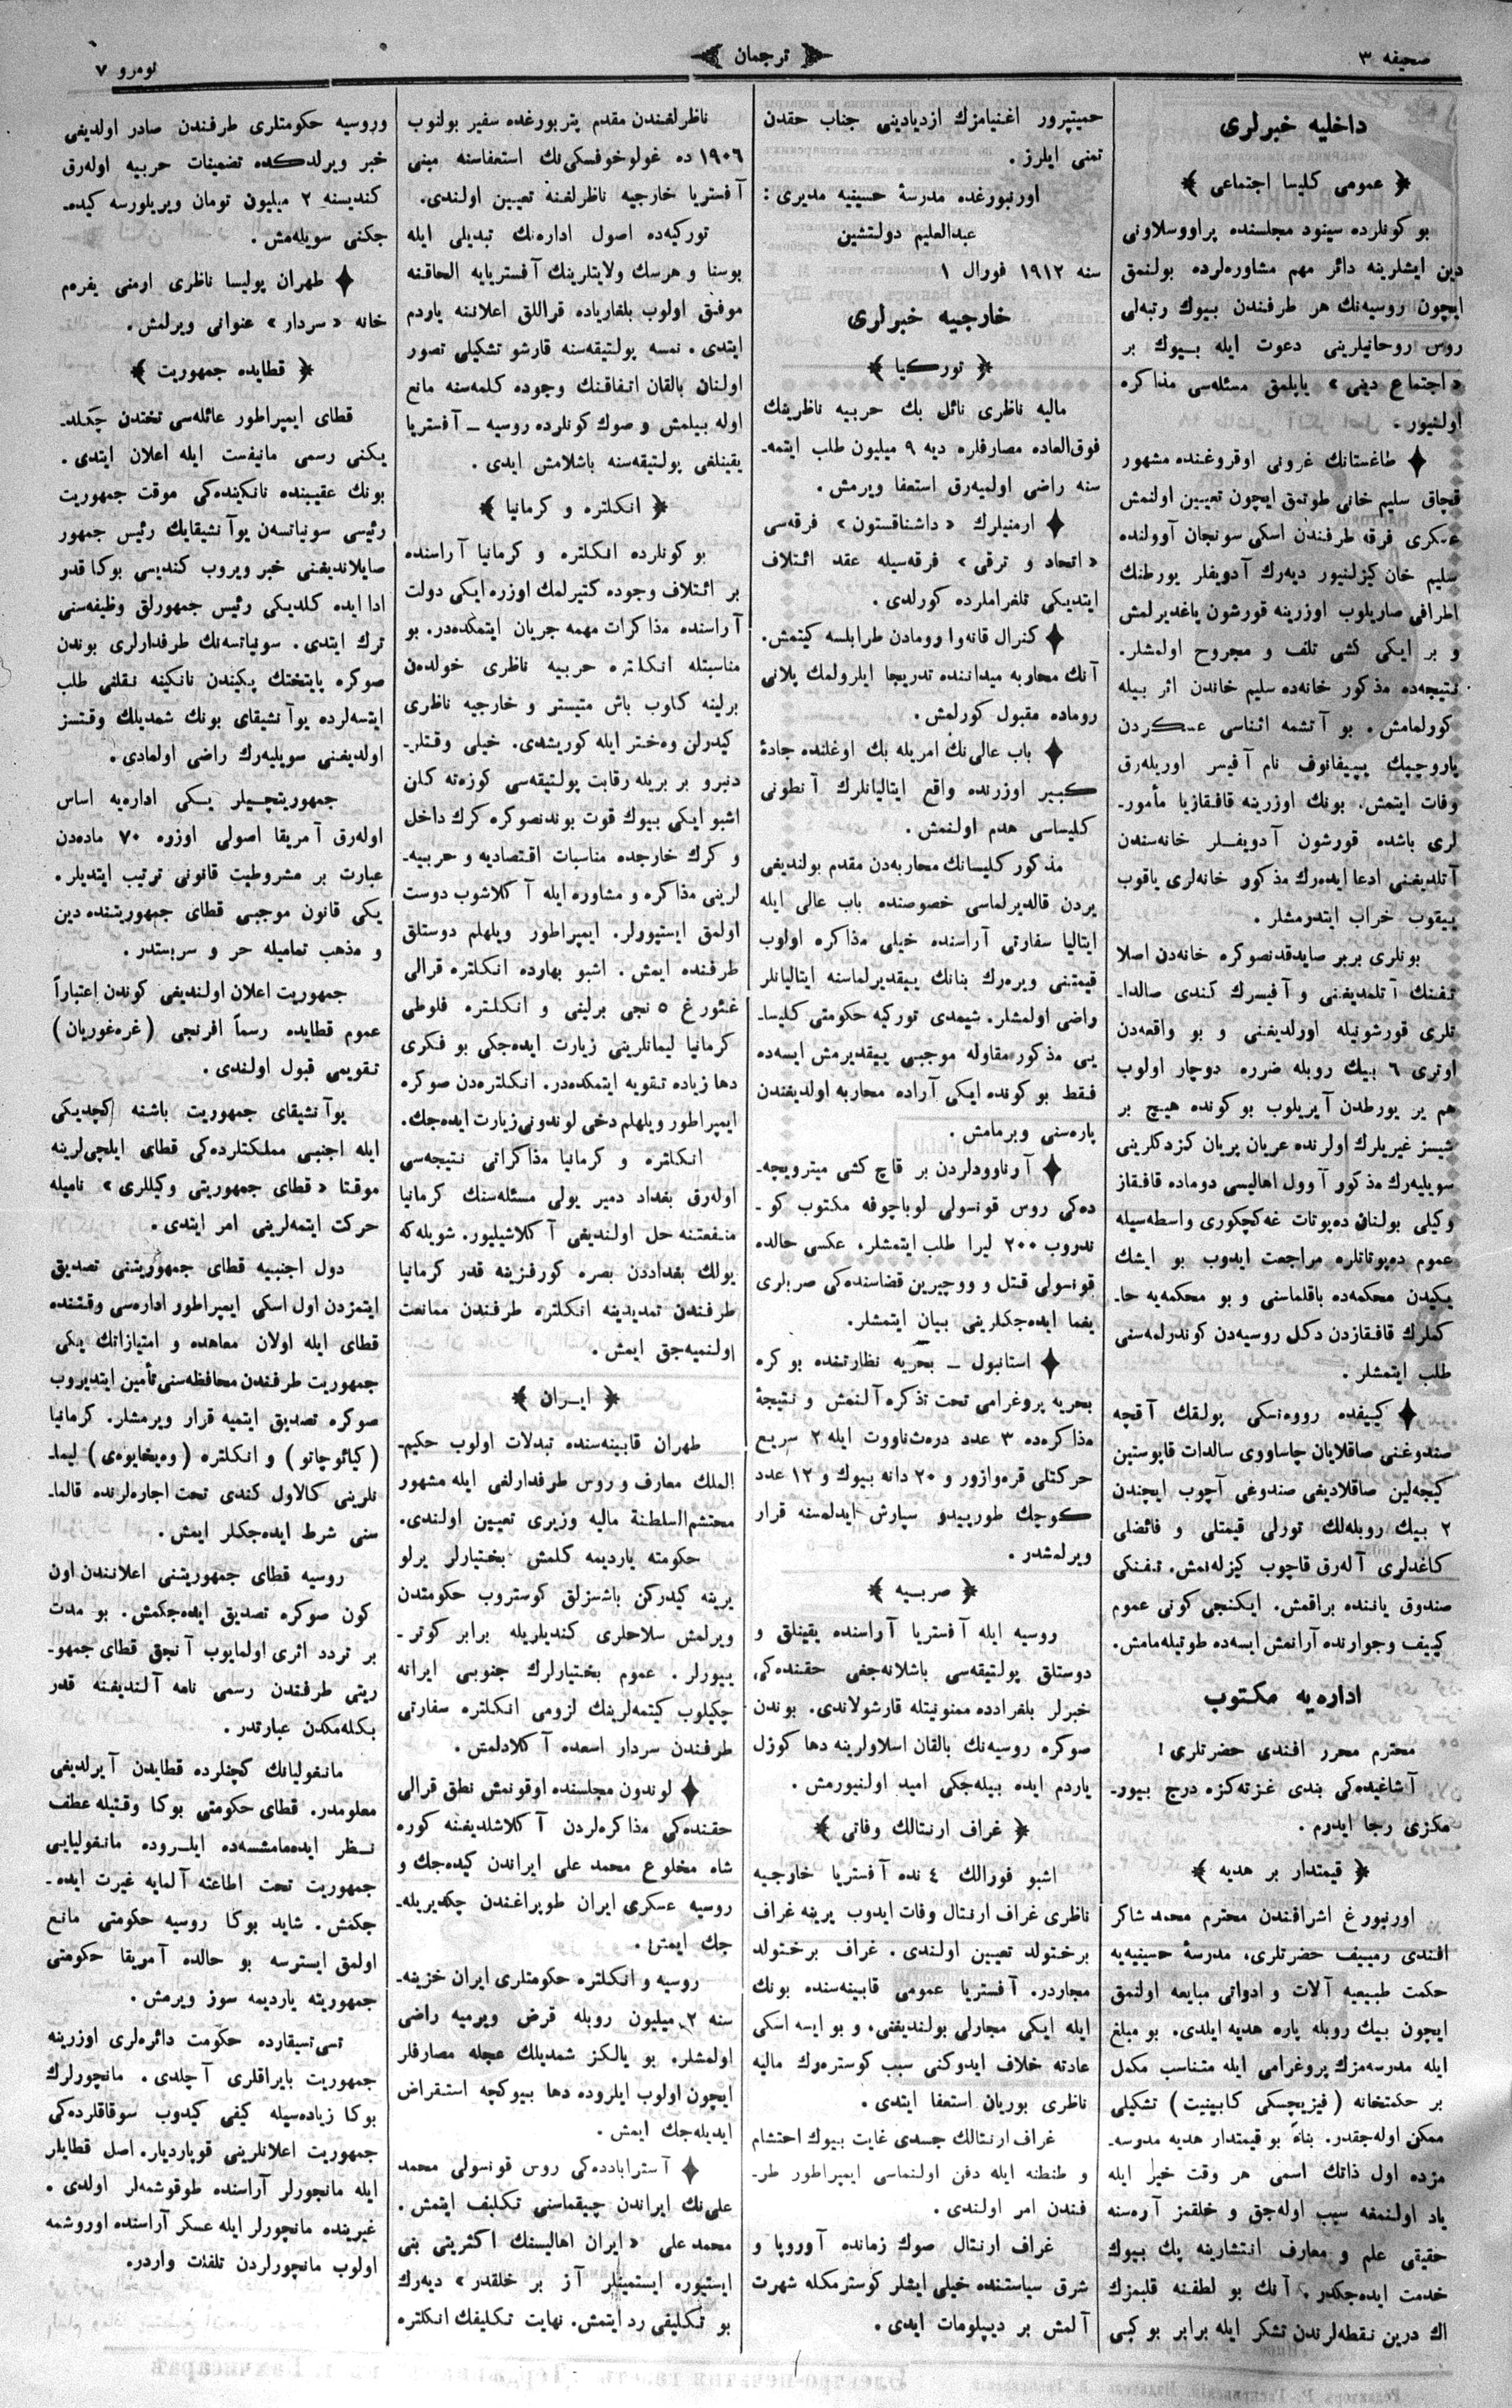 صحيفه ٣
ترجمان
نومرو ٧
داخليه خبرلری
عمومی كليسا اجتماعی
بو كونلرده سينود مجلسنده پراووسلاونی
دين ايشلرينه دائر مهم مشاوره‌لرده بولنمق
ايچون روسيه‌نك هر طرفندن بيوك رتبه‌لی
روس روحانيلرينی دعوت ايله بيوك بر
«اجتماع دينی» ياپلمق مسئله‌سی مذاكره
اولنيور.
طاغستانك غرونی اوقروغنده مشهور
قچاق سليم خانی طوتمق ايچون تعيين اولنمش
عسكری فرقه طرفندن اسكی سونجان آوولنده
سليم خان كيزلنيور ديه‌رك آدويفلر يورطنك
اطرافی صاريلوب اوزرينه قورشون ياغديرلمش
و بر ايكی كشی تلف و مجروح اولمشلر.
نتيجه‌ده مذكور خانه‌ده سليم خاندن اثر بيله
كورلمامش. بو آتشمه اثناسی عسكردن
پاروچيك يپيفانوف نام آفيسر اوريله‌رق
وفات ايتمش. بونك اوزرينه قافقازيا مأمور-
لری باشده قورشون آدويفلر خانه‌سندن
آتلديغنی ادعا ايده‌رك مذكور خانه‌لری ياقوب
ييقوب خراب ايتدرمشلر.
بونلری بربر صايدقدنصوكره خانه‌دن اصلا
تفنك آتلمديغنی و آفيسرك كندی صالدا-
تلری قورشونيله اورلديغنی و بو واقعه‌دن
اوتری ٦ بيك روبله ضرره دوچار اولوب
هم ير يورطدن آيريلوب بو كونده هيچ بر
شيسز غيريلرك اولرنده عريان پريان كزدكلرينی
سويليه‌رك مذكور آوول اهاليسی دوماده قافقاز
وكيلی بولنان ده‌پوتات غه‌كچكوری واسطه‌سيله
عموم ده‌پوتاتلره مراجعت ايدوب بو ايشك
يكيدن محكمه‌ده باقلماسنی و بو محكمه‌يه حا-
كملرك قافقازدن دكل روسيه‌دن كوندرلمه‌سنی
طلب ايتمشلر.
كييفده رووه‌نسكی بولقك آقچه
صندوغنی صاقلايان چاساووی سالدات قاپوستين
كيجه‌لين صاقلاديغی صندوغی آچوب ايچندن
٢ بيك روبله‌لك تورلی قيمتلی و فائضلی
كاغدلری آله‌رق قاچوب كيزله‌نمش. تفنكی
صندوق ياننده براقمش. ايكنجی كونی عموم
كييف وجوارنده آرانمش ايسه‌ده طوتيله‌مامش.
اداره‌يه مكتوب
محترم محرر افندی حضرتلری!
آشاغيده‌كی بندی غزته‌كزه درج بيور-
مكزی رجا ايدرم.
قيمتدار بر هديه
اورنبورغ اشرافندن محترم محمد شاكر
افندی رمييف حضرتلری، مدرسهٔ حسينيه‌يه
حكمت طبيعيه آلات و ادواتی مبايعه اولنمق
ايچون بيك روبله پاره هديه ايلدی. بو مبلغ
ايله مدرسه‌مزك پروغرامی ايله متناسب مكمل
بر حكمتخانه (فيزيچسكی كابينيت) تشكيلی
ممكن اوله‌جقدر. بناءً بو قيمتدار هديه مدرسه-
مزده اول ذاتك اسمی هر وقت خير ايله
ياد اولنمغه سبب اوله‌جق و خلقمز آره‌سنه
حقيقی علم و معارف انتشارينه پك بيوك
خدمت ايده‌جكدر. آنك بو لطفنه قلبمزك
اك درين نقطه‌لرندن تشكر ايله برابر بو كبی
حميتپرور اغنيامزك ازديادينی جناب حقدن
تمنی ايلرز.
اورنبورغده مدرسهٔ حسينيه مديری:
عبدالعليم دولتشين
سنه ١٩١٢ فورال ١
خارجيه خبرلری
توركيا
ماليه ناظری نائل بك حربيه ناظرينك
فوق‌العاده مصارفلره ديه ٩ ميليون طلب ايتمه-
سنه راضی اولميه‌رق استعفا ويرمش.
ارمنيلرك «داشناقستون» فرقه‌سی
«اتحاد و ترقی» فرقه‌سيله عقد ائتلاف
ايتديكی تلغرافلرده كورلدی.
كنرال قانه‌وا رومادن طرابلسه كيتمش.
آنك محاربه ميداننده تدريجا ايلرولمك پلانی
روماده مقبول كورلمش.
باب عالی‌نك امريله بك اوغلنده جادهٔ
كبير اوزرنده واقع ايتاليانلرك آنطونی
كليساسی هدم اولنمش.
مذكور كليسانك محاربه‌دن مقدم بولنديغی
يردن قالديرلماسی خصوصنده باب عالی ايله
ايتاليا سفارتی آراسنده خيلی مذاكره اولوب
قيمتنی ويره‌رك بنانك ييقديرلماسنه ايتاليانلر
راضی اولمشلر. شيمدی توركيه حكومتی كليسا-
يی مذكور مقاوله موجبی ييقديرمش ايسه‌ده
فقط بو كونده ايكی آراده محاربه اولديغندن
پاره‌سنی ويرمامش.
آرناوودلردن بر قاچ كشی ميترويچه-
ده‌كی روس قونسولی لوباچوفه مكتوب كو-
ندروب ٢٠٠ ليرا طلب ايتمشلر. عكسی حالده
قونسولی قتل و ووچيرين قضاسنده‌كی صربلری
يغما ايده‌جكلرينی بيان ايتمشلر.
استانبول ــ بحريه نظارتنده بو كره
بحريه پروغرامی تحت تذكره آلنمش و نتيجهٔ
مذاكره‌ده ٣ عدد دره‌ت‌ناووت ايله ٢ سريع
حركتلی قره‌وازور و ٢٠ دانه بيوك و ١٢ عدد
كوچك طورپيدو سپارش ايدلمسنه قرار
ويرلمشدر.
صربيه
روسيه ايله آفستريا آراسنده يقينلق و
دوستلق پولتيقه‌سی باشلانه‌جغی حقنده‌كی
خبرلر بلغرادده ممنونيتله قارشولاندی. بوندن
صوكره روسيه‌نك بالقان اسلاولرينه دها كوزل
ياردم ايده بيله‌جكی اميد اولنيورمش.
غراف ارنتالك وفاتی
اشبو فورالك ٤ نده آفستريا خارجيه
ناظری غراف ارنتال وفات ايدوب يرينه غراف
برختولد تعيين اولندی. غراف برختولد
مجاردر. آفستريا عمومی قابينه‌سنده بونك
ايله ايكی مجارلی بولنديغنی، و بو ايسه اسكی
عادته خلاف ايدوكنی سبب كوستره‌رك ماليه
ناظری بوريان استعفا ايتدی.
غراف ارنتالك جسدی غايت بيوك احتشام
و طنطنه ايله دفن اولنماسی ايمپراطور طر-
فندن امر اولندی.
غراف ارنتال صوك زمانده آوروپا و
شرق سياستنده خيلی ايشلر كوسترمكله شهرت
آلمش بر ديپلومات ايدی.
ناظرلغندن مقدم پتربورغده سفير بولنوب
١٩٠٦ ده غولوخوفسكی‌نك استعفاسنه مبنی
آفستريا خارجيه ناظرلغنه تعيين اولندی.
توركيه‌ده اصول اداره‌نك تبديلی ايله
بوسنا و هرسك ولايتلرينك آفستريايه الحاقنه
موفق اولوب بلغارياده قراللق اعلاننه ياردم
ايتدی. نمسه پولتيقه‌سنه قارشو تشكيلی تصور
اولنان بالقان اتفاقنك وجوده كلمه‌سنه مانع
اوله بيلمش و صوك كونلرده روسيه ــ آفستريا
يقينلغی پولتيقه‌سنه باشلامش ايدی.
انكلتره و كرمانيا
بو كونلرده انكلتره و كرمانيا آراسنده
بر ائتلاف وجوده كتيرلمك اوزره ايكی دولت
آراسنده مذاكرات مهمه جريان ايتمكده‌در. بو
مناسبتله انكلتره حربيه ناظری خولده‌ن
برلينه كلوب باش منيستر و خارجيه ناظری
كيدرلن وه‌ختر ايله كوريشدی. خيلی وقتلر-
دنبرو بر بريله رقابت پولتيقه‌سی كوزه‌ته كلن
اشبو ايكی بيوك قوت بوندنصوكره كرك داخل
و كرك خارجده مناسبات اقتصاديه و حربيه-
لرينی مذاكره و مشاوره ايله آكلاشوب دوست
اولمق ايستيورلر. ايمپراطور ويلهلم دوستلق
طرفنده ايمش. اشبو بهارده انكلتره قرالی
غئورغ ٥ نجی برلينی و انكلتره فلوطی
كرمانيا ليمانلرينی زيارت ايده‌جكی بو فكری
دها زياده تقويه ايتمكده‌در. انكلتره‌دن صوكره
ايمپراطور ويلهلم دخی لوندونی زيارت ايده‌جك.
انكلتره و كرمانيا مذاكراتی نتيجه‌سی
اوله‌رق بغداد دمير يولی مسئله‌سنك كرمانيا
منفعتنه حل اولنديغی آكلاشيليور. شويله‌كه
يولك بغداددن بصره كورفزينه قدر كرمانيا
طرفندن تمديدينه انكلتره طرفندن ممانعت
اولنميه‌جق ايمش.
ايران
طهران قابينه‌سنده تبدلات اولوب حكيم-
الملك معارف و روس طرفدارلغی ايله مشهور
محتشم‌السلطنة ماليه وزيری تعيين اولندی.
حكومته يارديمه كلمش بختيارلر يرلو
يرينه كيدركن باشسزلق كوستروب حكومتدن
ويرلمش سلاحلری كنديلريله برابر كوتر-
ييورلر. عموم بختيارلرك جنوبی ايرانه
چكيلوب كيتمه‌لرينك لزومی انكلتره سفارتی
طرفندن سردار اسعده آكلادلمش.
لوندون مجلسنده اوقونمش نطق قرالی
حقنده‌كی مذاكره‌لردن آكلاشلديغنه كوره
شاه مخلوع محمد علی ايراندن كيده‌جك و
روسيه عسكری ايران طوپراغندن چكديريله-
جك ايمش.
روسيه و انكلتره حكومتلری ايران خزينه-
سنه ٢ ميليون روبله قرض ويرميه راضی
اولمشلر. بو يالكز شمديلك عجله مصارفلر
ايچون اولوب ايلروده دها بيوكچه استقراض
ايديله‌جك ايمش.
آسترابادده‌كی روس قونسولی محمد
علی‌نك ايراندن چيقماسنی تكليف ايتمش.
محمد علی «ايران اهاليسنك اكثريتی بنی
ايستيوره ايستمينلر آز بر خلقدر» ديه‌رك
بو تكليفی رد ايتمش. نهايت تكليفك انكلتره
وروسيه حكومتلری طرفندن صادر اولديغی
خبر ويرلدكده تضمينات حربيه اوله‌رق
كنديسنه ٢ ميليون تومان ويريلورسه كيده-
جكنی سويله‌مش.
طهران پوليسا ناظری ارمنی يفرم
خانه «سردار» عنوانی ويرلمش.
قطايده جمهوريت
قطای ايمپراطور عائله‌سی تختدن چكلد-
يكنی رسمی مانيفست ايله اعلان ايتدی.
بونك عقيبنده نانكينده‌كی موقت جمهوريت
رئيسی سونياتسه‌ن يوآنشيقايك رئيس جمهور
صايلانديغنی خبر ويروب كنديسی بوكا قدر
ادا ايده كلديكی رئيس جمهورلق وظيفه‌سنی
ترك ايتدی. سونياتسه‌نك طرفدارلری بوندن
صوكره پايتختك پكيندن نانكينه نقلنی طلب
ايتسه‌لرده يوآنشيقای بونك شمديلك وقتسز
اولديغنی سويليه‌رك راضی اولمادی.
جمهوريتچيلر يكی اداره‌يه اساس
اوله‌رق آمريقا اصولی اوزره ٧٠ ماده‌دن
عبارت بر مشروطيت قانونی ترتيب ايتديلر.
يكی قانون موجبی قطای جمهوريتنده دين
و مذهب تماميله حر و سربستدر.
جمهوريت اعلان اولنديغی كوندن اعتباراً
عموم قطايده رسماً افرنجی (غره‌غوريان)
تقويمی قبول اولندی.
يوآنشيقای جمهوريت باشنه كچديكی
ايله اجنبی مملكتلرده‌كی قطای ايلچی‌لرينه
موقتا «قطای جمهوريتی وكيللری» ناميله
حركت ايتمه‌لرينی امر ايتدی.
دول اجنبيه قطای جمهوريتنی تصديق
ايتمزدن اول اسكی ايمپراطور اداره‌سی وقتنده
قطای ايله اولان معاهده و امتيازاتك يكی
جمهوريت طرفندن محافظه‌سنی تأمين ايتديروب
صوكره تصديق ايتميه قرار ويرمشلر. كرمانيا
(كيائوچاتو) و انكلتره (وه‌يخايوه‌ی) ليما-
نلرينی كالاول كندی تحت اجاره‌لرنده قالما-
سنی شرط ايده‌جكلر ايمش.
روسيه قطای جمهوريتنی اعلانندن اون
كون صوكره تصديق ايده‌جكمش. بو مدت
بر تردد اثری اولمايوب آنجق قطای جمهو-
ريتی طرفندن رسمی نامه آلنديغنه قدر
بكله‌مكدن عبارتدر.
مانغوليانك كچنلرده قطايدن آيرلديغی
معلومدر. قطای حكومتی بوكا وقتيله عطف
نظر ايده‌مامشسه‌ده ايلروده مانغوليايی
جمهوريت تحت اطاعته آلمايه غيرت ايده-
جكمش. شايد بوكا روسيه حكومتی مانع
اولمق ايسترسه بو حالده آمريقا حكومتی
جمهوريته يارديمه سوز ويرمش.
تسی‌تسيقارده حكومت دائره‌لری اوزرينه
جمهوريت بايراقلری آچلدی. مانچورلرك
بوكا زياده‌سيله كيفی كيدوب سوقاقلرده‌كی
جمهوريت اعلانلرينی قوپارديلر. اصل قطايلر
ايله مانچورلر آراسنده طوقوشمه‌لر اولدی.
غيرينده مانچورلر ايله عسكر آراسنده اوروشمه
اولوب مانچورلردن تلفات واردر.